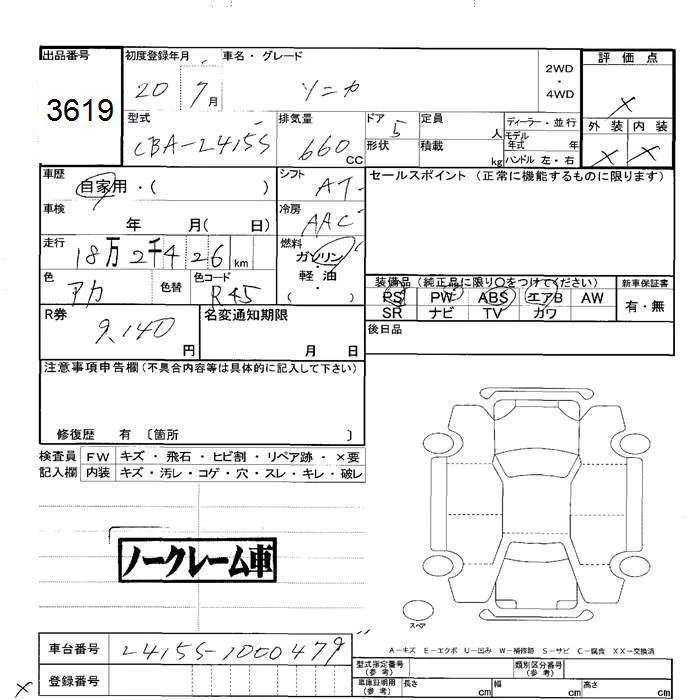 出品番号 初度登録年月 車名・グレード 評価点
3619 20 7月 ソニカ 2WD ・ 4WD ×
型式 排気量 ドア 定員 ディーラー・並行 外装 内装
CBA-L415S 660 CC 5 人 モデル年式 年 × ×
形状 積載 kg ハンドル 左・右
車歴 シフト セールスポイント (正常に機能するものに限ります)
自家用・( ) AT
車検 冷房
年 月( 日) AAC
走行 燃料
18万2千426 km ガソリン・軽油( )
色 色替 色コード 装備品 (純正品に限り○をつけてください) 新車保証書
アカ R45 PS PW ABS エアB AW 有・無
SR ナビ TV カワ
R券 名変通知期限 後日品
9,140 円 月 日
注意事項申告欄(不具合内容等は具体的に記入して下さい)
修復歴 有 〔箇所 〕
検査員 FW キズ・飛石・ヒビ割・リペア跡・×要
記入欄 内装 キズ・汚レ・コゲ・穴・スレ・キレ・破レ
ノークレーム車
スペア
A-キズ E-エクボ U-凹み W-補修跡 S-サビ C-腐食 XX-交換済
車台番号 L415S-1000479 型式指定番号(参考) 類別区分番号(参考)
× 登録番号 車庫証明用(参考) 長さ cm 幅 cm 高さ cm